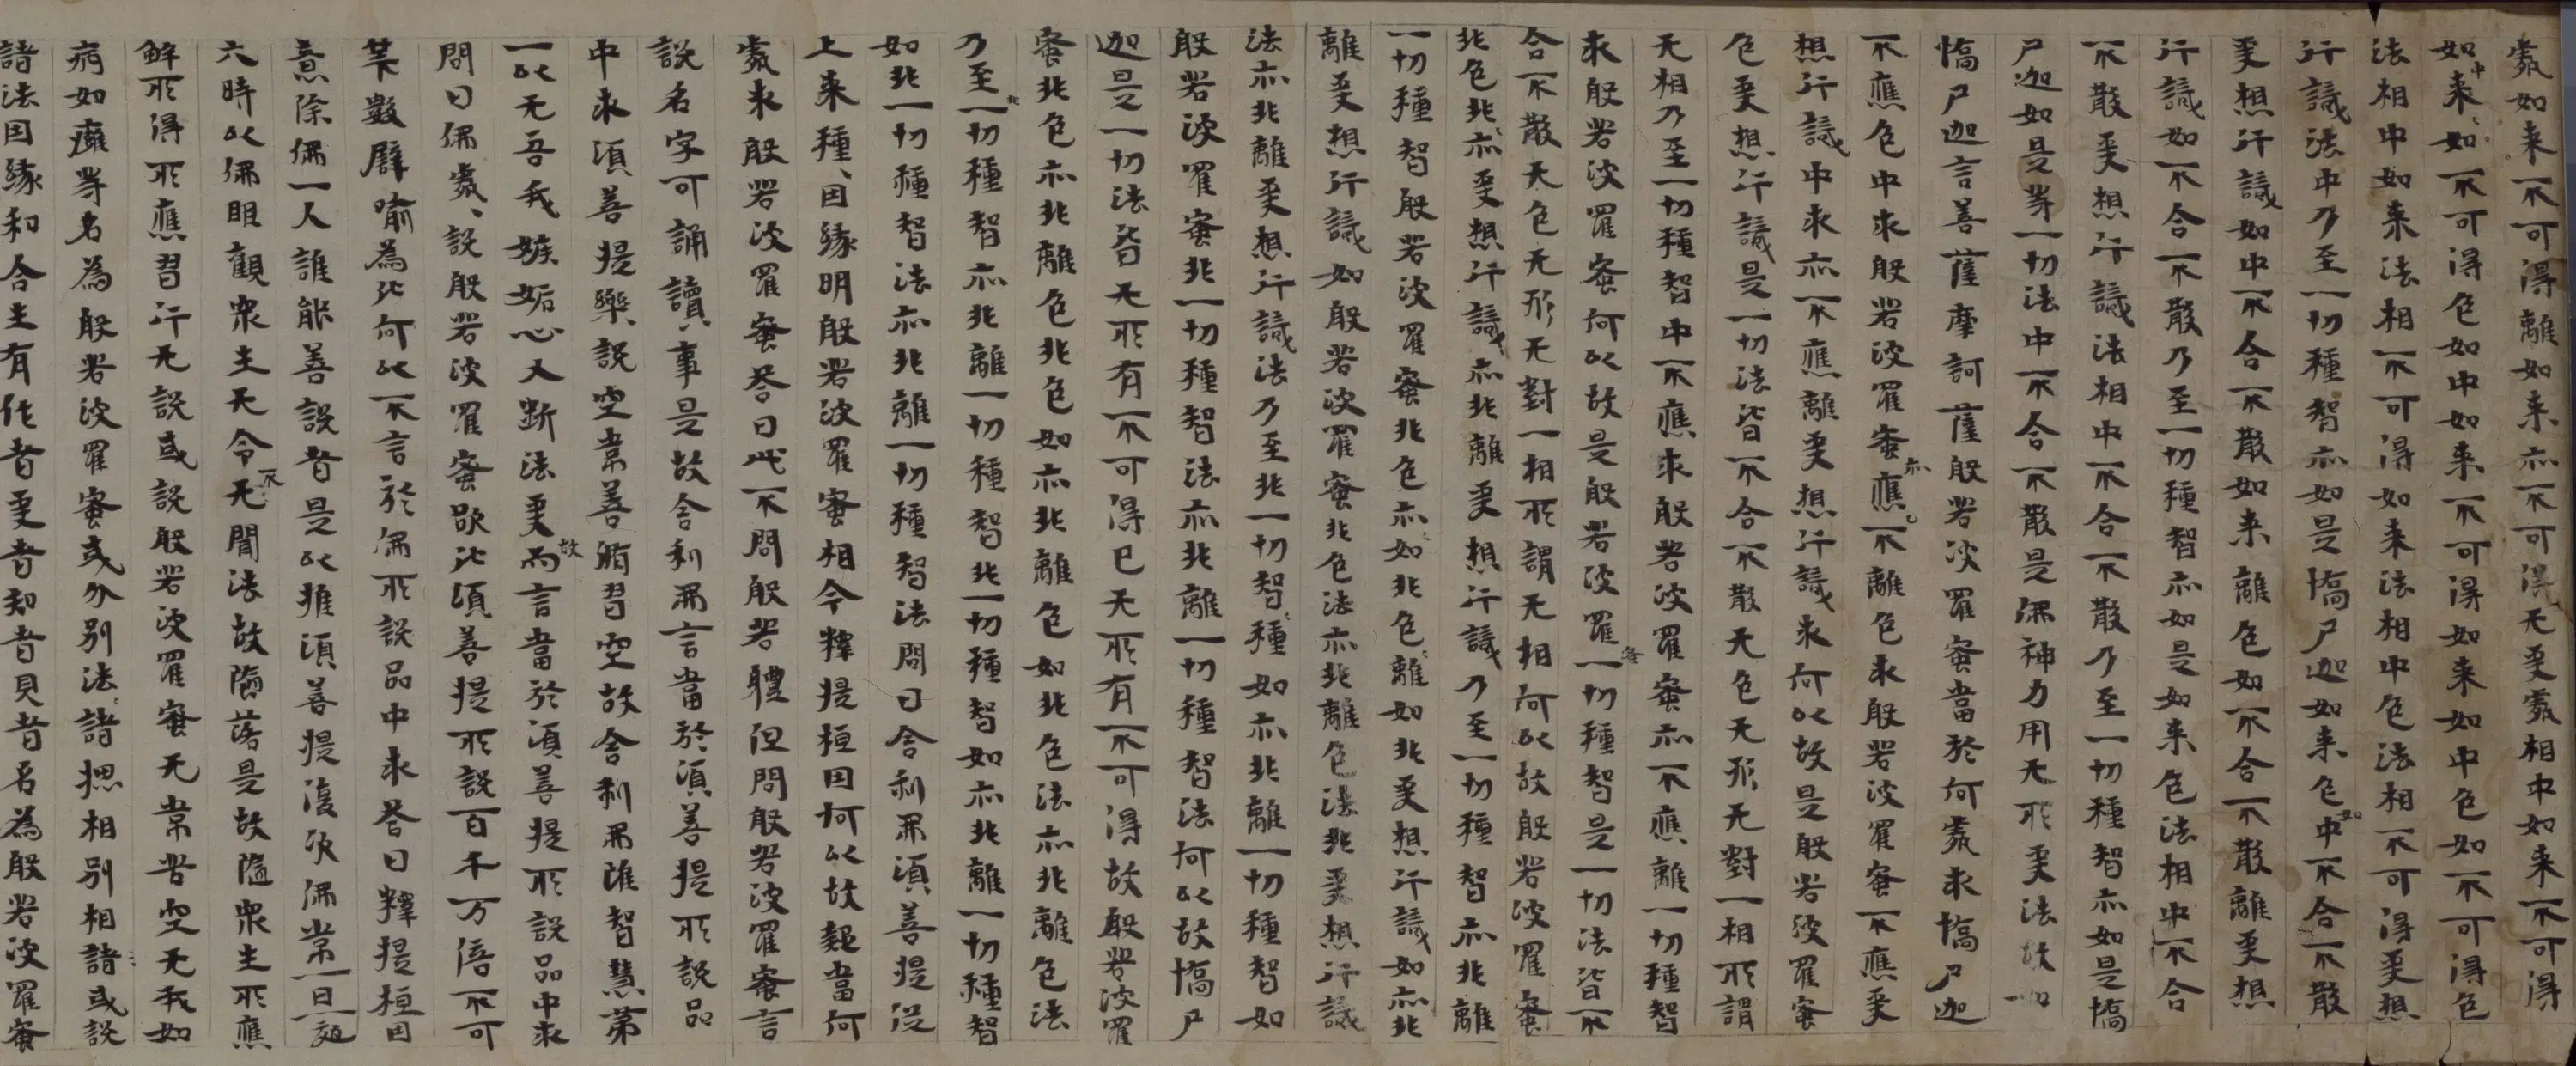 處如来不可得離如来亦不可得无受處相中如来不可得
如中来如不可得色如中如来不可得如来如中色如不可得色
法相中如来法相不可得如来法相中色法相不可得受想
行識法中乃至一切種智亦如是憍尸迦如来色如中不合不散
受想行識如中不合不散如来離色如不合不散離受想
行識如不合不散乃至一切種智亦如是如来色法相中不合
不散受想行識法相中不合不散乃至一切種智亦如是憍
尸迦如是等一切法中不合不散是佛神力用无所受法故如
憍尸迦言善薩摩訶薩般若波羅蜜當於何處求憍尸迦
不應色中求般若波羅蜜亦應不離色求般若波羅蜜不應受
想行識中求亦不應離受想行識求何以故是般若波羅蜜
色受想行識是一切法皆不合不散无色无形无對一相所謂
无相乃至一切種智中不應求般若波羅蜜亦不應離一切種智
求般若波羅蜜何以故是般若波羅蜜一切種智是一切法皆不
合不散无色无形无對一相所謂无相何以故般若波羅蜜
非色非亦受想行識亦非離受想行識乃至一切種智亦非離
一切種智般若波羅蜜非色亦如非色離如非受想行識如亦非
離受想行識如般若波羅蜜非色法亦非離色法非受想行識
法亦非離受想行識法乃至非一切智種如亦非離一切種智如
般若波羅蜜非一切種智法亦非離一切種智法何以故憍尸
迦是一切法皆无所有不可得已无所有不可得故般若波羅
蜜非色亦非離色非色如亦非離色如非色法亦非離色法
乃至非一切種智亦非離一切種智非一切種智如亦非離一切種智
如非一切種智法亦非離一切種智法問曰舍利弗須菩提從
上来種、因緣明般若波羅蜜相今釋提桓因何以故起當何
處求般若波羅蜜荅曰此不問般若體但問般若波羅蜜言
說名字可誦讀事是故舍利弗言當於須菩提所說品
中求須菩提樂說空常善脩習空故舍利弗雖智慧第
一以无吾我嫉妬心又断法愛故而言當於須菩提所說品中求
問曰佛處、說般若波羅蜜欲比須菩提所說百千万倍不可
筭數辟喻為比何以不言於佛所說品中求荅曰釋提桓因
意除佛一人誰能善說者是以推須菩提復次佛常一日一夜
六時以佛眼觀衆生无令不无聞法故墮落是故隨衆生所應
解所得所應習行无說或說般若波羅蜜无常苦空无我如
病如癰等名為般若波羅蜜或分別法諸揔相別相諸或說
諸法因緣和合生有作者受者知者見者名為般若波羅蜜